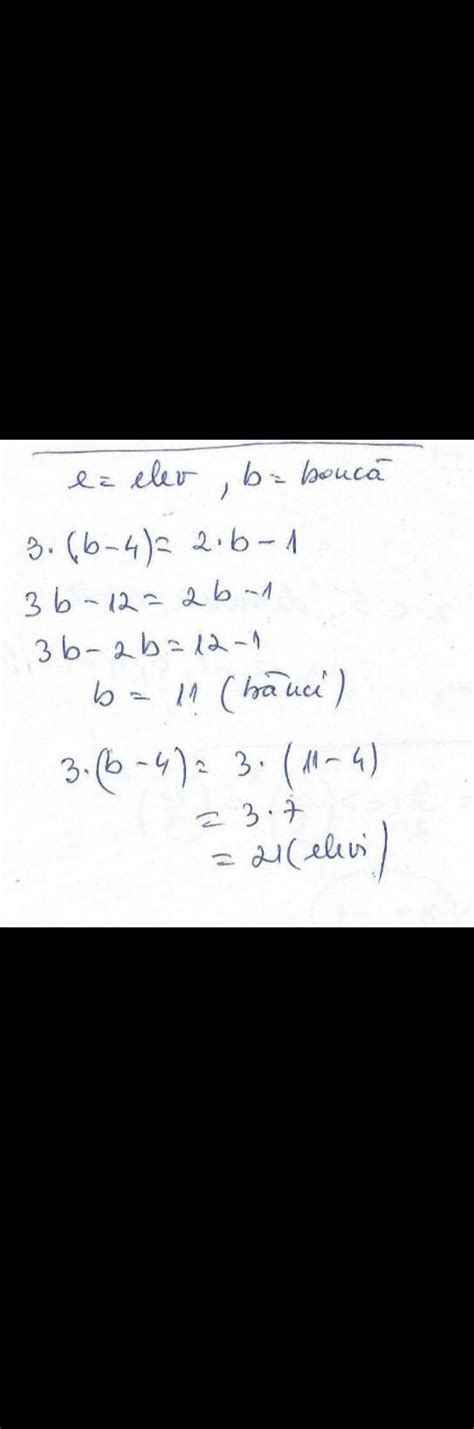 e = elev , b = bancă
3·(b-4) = 2·b-1
3b-12 = 2b-1
3b-2b = 12-1
b = 11 (bănci)
3·(b-4) = 3·(11-4)
= 3·7
= 21 (elevi)